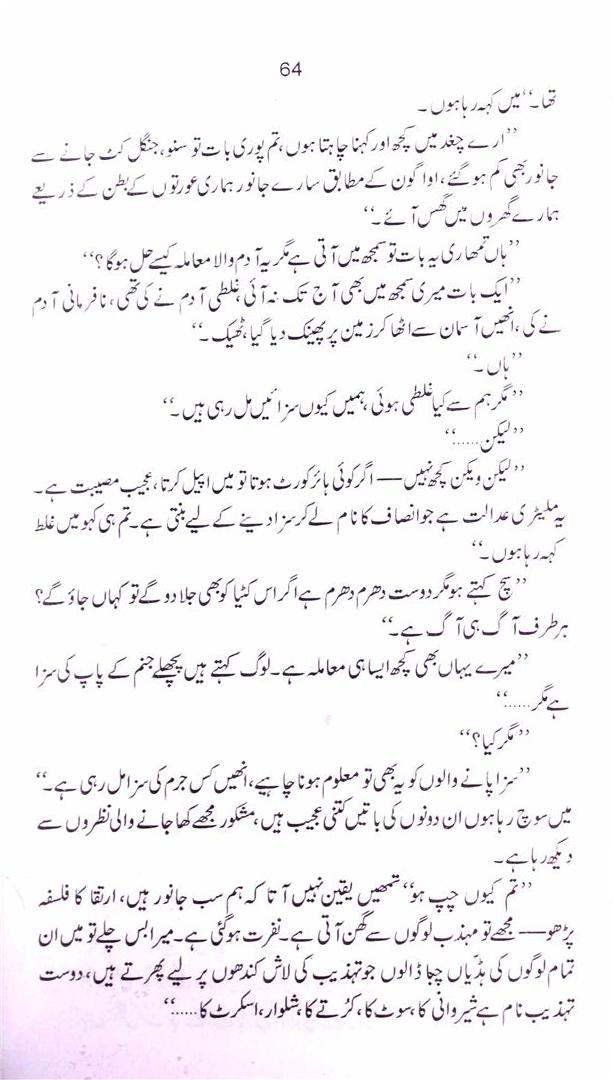 64
تھا۔‘‘ میں کہہ رہا ہوں۔
’’ارے چغد میں کچھ اور کہنا چاہتا ہوں، تم پوری بات تو سنو، جنگل کٹ جانے سے
جانور بھی کم ہو گئے، اواگون کے مطابق سارے جانور ہماری عورتوں کے بطن کے ذریعے
ہمارے گھروں میں گھس آئے۔‘‘
’’ہاں تمھاری یہ بات تو سمجھ میں آتی ہے مگر یہ آدم والا معاملہ کیسے حل ہوگا؟‘‘
’’ایک بات میری سمجھ میں بھی آج تک نہ آئی، غلطی آدم نے کی تھی، نافرمانی آدم
نے کی، انھیں آسمان سے اٹھا کر زمین پر پھینک دیا گیا، ٹھیک۔‘‘
’’ہاں۔‘‘
’’مگر ہم سے کیا غلطی ہوئی، ہمیں کیوں سزائیں مل رہی ہیں۔‘‘
’’لیکن......‘‘
’’لیکن ویکن کچھ نہیں — اگر کوئی ہائر کورٹ ہوتا تو میں اپیل کرتا، عجیب مصیبت ہے۔
یہ ملیٹری عدالت ہے جو انصاف کا نام لے کر سزا دینے کے لیے بنتی ہے۔ تم ہی کہو میں غلط
کہہ رہا ہوں۔‘‘
’’سچ کہتے ہو مگر دوست دھرم دھرم ہے اگر اس کٹیا کو بھی جلا دو گے تو کہاں جاؤ گے؟
ہر طرف آگ ہی آگ ہے۔‘‘
’’میرے یہاں بھی کچھ ایسا ہی معاملہ ہے۔ لوگ کہتے ہیں پچھلے جنم کے پاپ کی سزا
ہے مگر......‘‘
’’مگر کیا؟‘‘
’’سزا پانے والوں کو یہ بھی تو معلوم ہونا چاہیے، انھیں کس جرم کی سزا مل رہی ہے۔‘‘
میں سوچ رہا ہوں ان دونوں کی باتیں کتنی عجیب ہیں، مشکور مجھے کھا جانے والی نظروں سے
دیکھ رہا ہے۔
’’تم کیوں چپ ہو‘‘ تمھیں یقین نہیں آتا کہ ہم سب جانور ہیں، ارتقا کا فلسفہ
پڑھو — مجھے تو مہذب لوگوں سے گھن آتی ہے۔ نفرت ہو گئی ہے۔ میرا بس چلے تو میں ان
تمام لوگوں کی ہڈیاں چبا ڈالوں جو تہذیب کی لاش کندھوں پر لیے پھرتے ہیں، دوست
تہذیب نام ہے شیروانی کا، سوٹ کا، کرتے کا، شلوار، اسکرٹ کا......‘‘